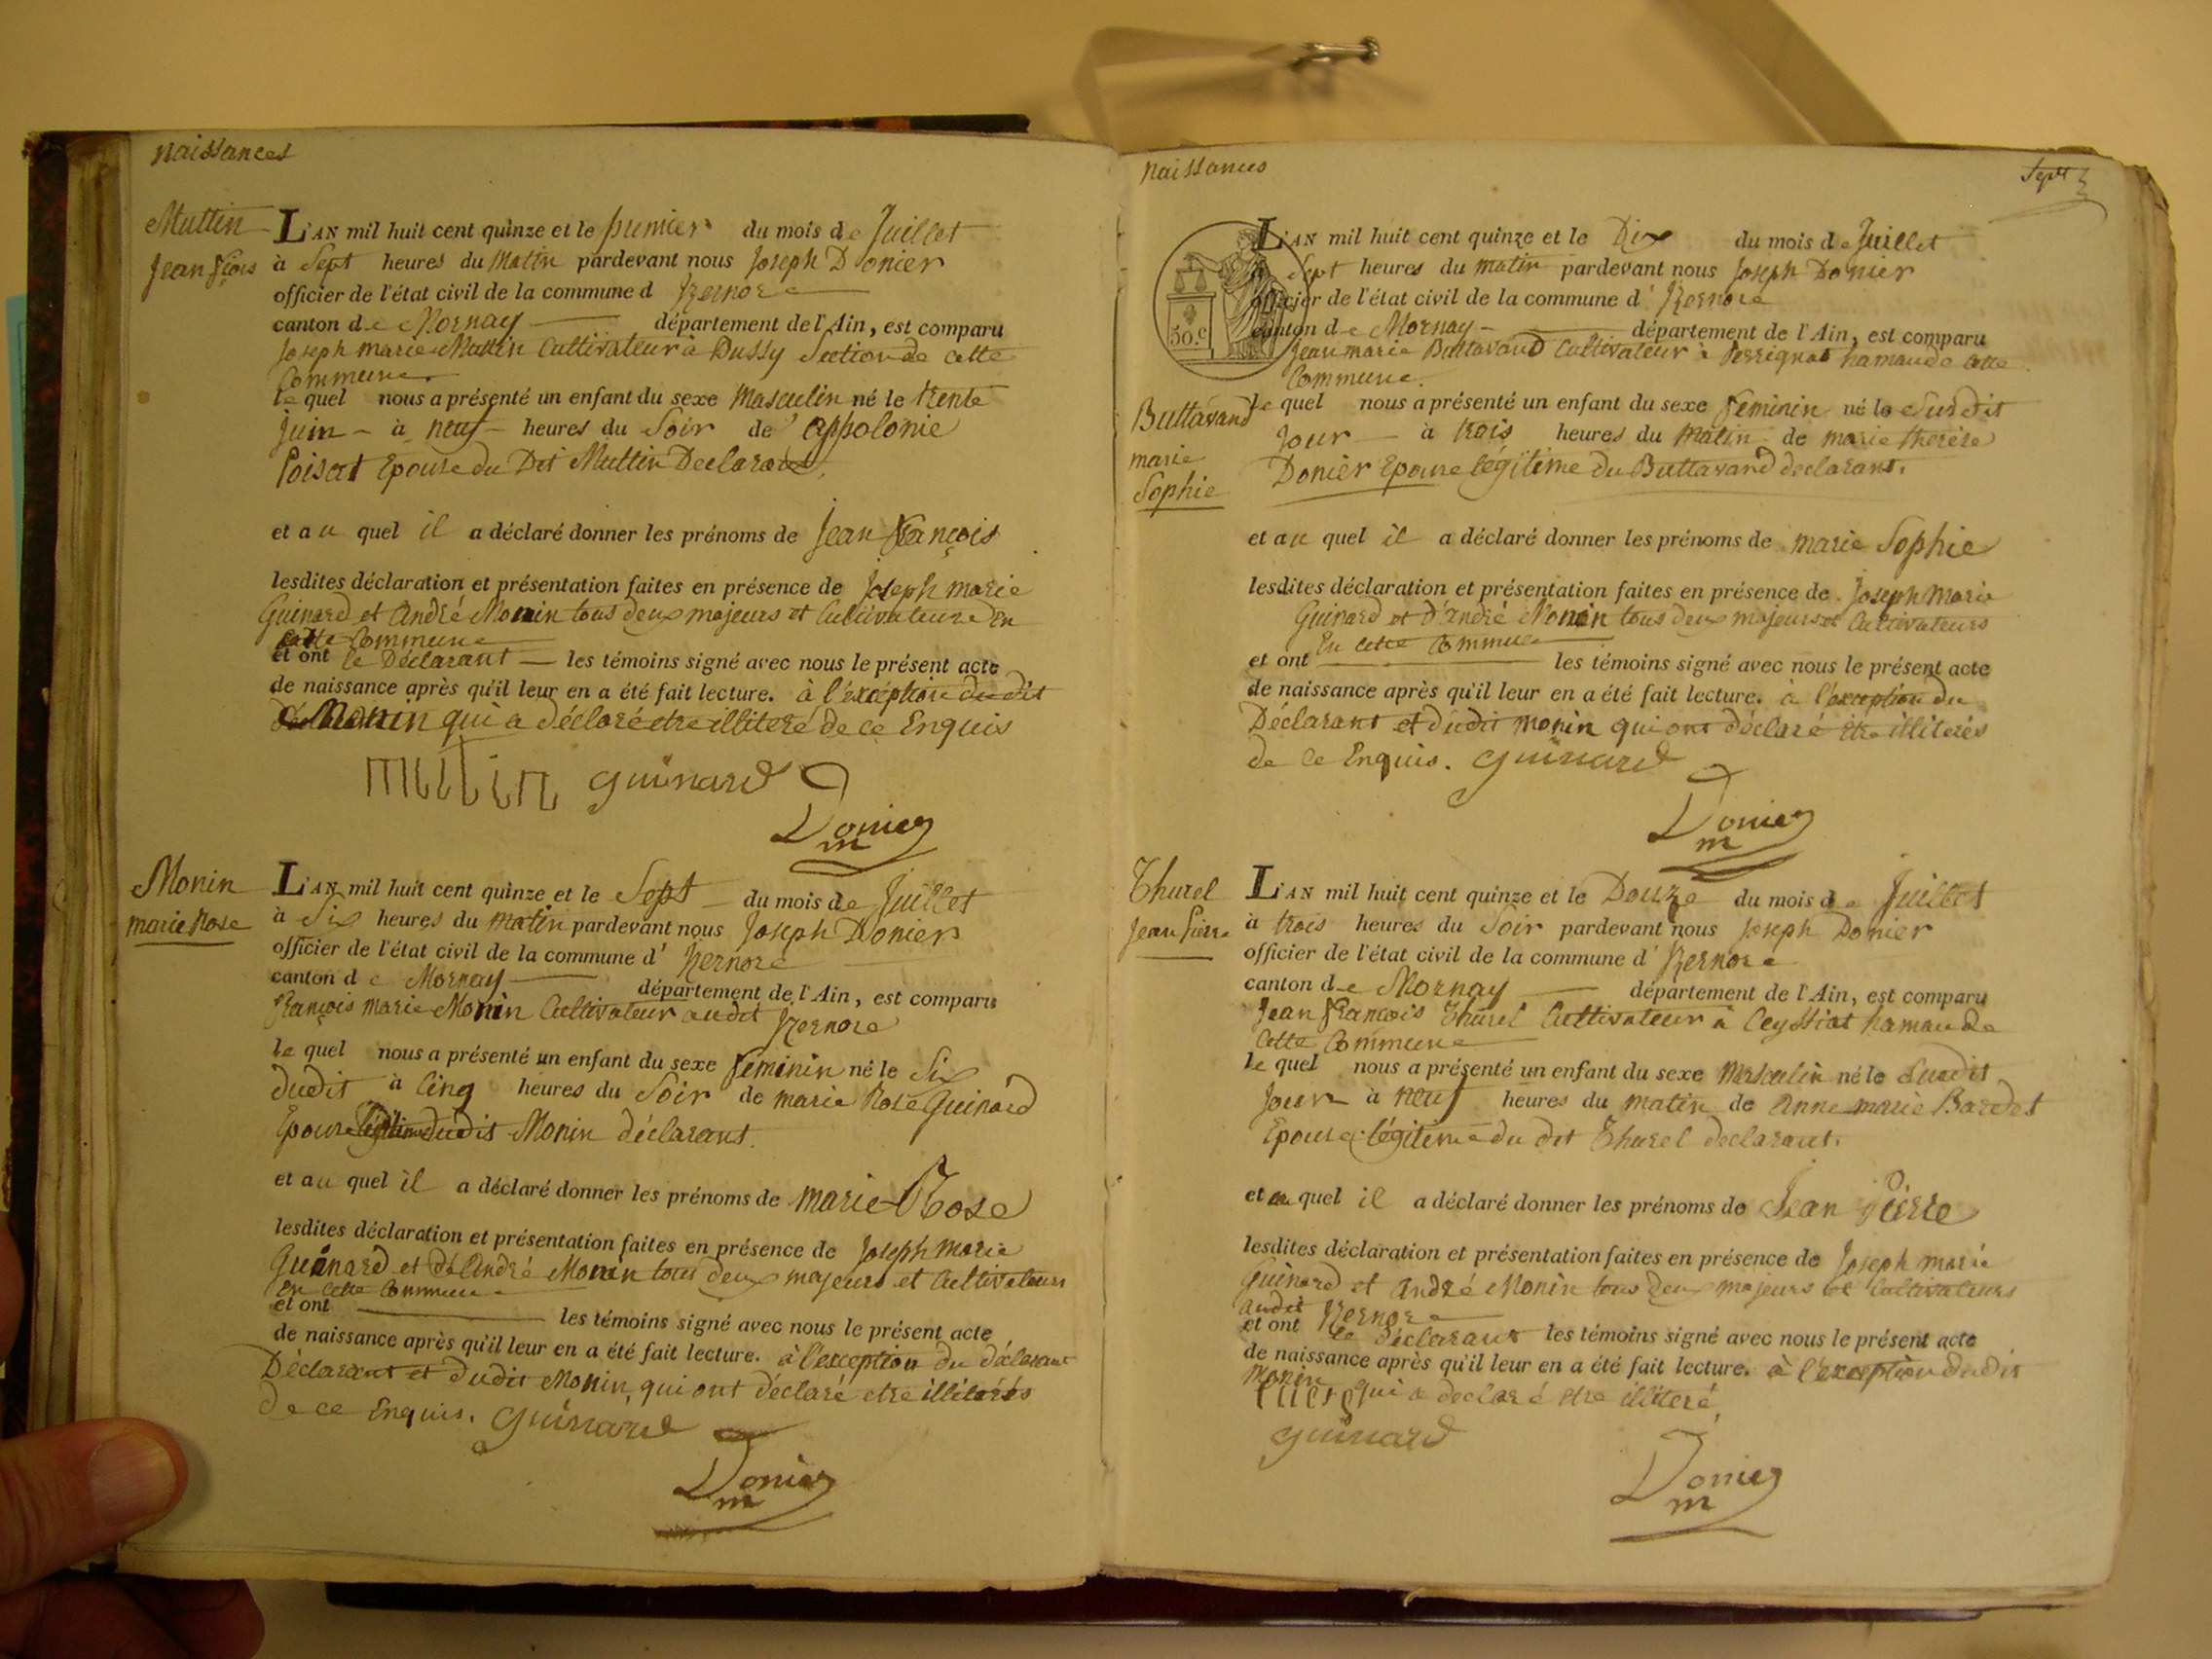 naissances
Muttin
Jean f.çois
L'AN mil huit cent quinze et le premier du mois de Juillet
à Sept heures du Matin pardevant nous Joseph Donier
officier de l'état civil de la commune d Izernore
canton de Mornay département de l'Ain, est comparu
Joseph marie Muttin Cultivateur à Bussy Section de cette
Commune.
le quel nous a présenté un enfant du sexe Masculin né le trente
Juin à neuf heures du Soir de appolonie
Poisat Epouse du Dit Muttin Declarant.
et au quel il a déclaré donner les prénoms de Jean François
lesdites déclaration et présentation faites en présence de Joseph marie
Guinard et André Monin tous deux majeurs et Cultivateurs En
cette Commune
et ont le Déclarant les témoins signé avec nous le présent acte
de naissance après qu'il leur en a été fait lecture. à l'exception du dit
Monin qui a déclaré etre illiteré de ce Enquis
mutin guinard
Donier
m
Monin
marie Rose
L'AN mil huit cent quinze et le Sept du mois de Juillet
à Six heures du Matin pardevant nous Joseph Donier
officier de l'état civil de la commune d' Izernore
canton de Mornay département de l'Ain, est comparu
François marie Monin Cultivateur audit Izernore
le quel nous a présenté un enfant du sexe feminin né le Six
dudit à Cinq heures du Soir de marie Rose Guinard
Epouse légitime dudit Monin déclarant.
et au quel il a déclaré donner les prénoms de marie Rose
lesdites déclaration et présentation faites en présence de Joseph Marie
Guinard et de André Monin tous deux majeurs et Cultivateurs
En cette Commune
et ont les témoins signé avec nous le présent acte
de naissance après qu'il leur en a été fait lecture. à l'exception du déclarant
Déclarant et dudit Monin, qui ont déclaré etre illiterés
de ce Enquis. guinard
Donier
m
naissances
Sept
50.c
L'AN mil huit cent quinze et le Dix du mois de Juillet
Sept heures du matin pardevant nous Joseph Donier
officier de l'état civil de la commune d' Izernore
canton de Mornay département de l'Ain, est comparu
Jean marie Buttavand Cultivateur à Perrignat hamau de Cette
Commune.
Buttavand
marie
Sophie
le quel nous a présenté un enfant du sexe feminin né le Susdit
Jour à trois heures du Matin de marie therèse
Donier Epouse légitime du Buttavand declarant.
et au quel il a déclaré donner les prénoms de marie Sophie
lesdites déclaration et présentation faites en présence de Joseph Marie
Guinard et d'André Monin tous deux majeurs et Cultivateurs
En cette Commune
et ont les témoins signé avec nous le présent acte
de naissance après qu'il leur en a été fait lecture. à l'exception du
Déclarant et dudit monin qui ont déclaré etre illiterés
de ce Enquis. guinard
Donier
m
Thurel
Jean Pierre
L'AN mil huit cent quinze et le Douze du mois de Juillet
à trois heures du Soir pardevant nous Joseph Donier
officier de l'état civil de la commune d' Izernore
canton de Mornay département de l'Ain, est comparu
Jean François Thurel Cultivateur à Ceyssiat hamau de
Cette Commune
le quel nous a présenté un enfant du sexe Masculin né le Susdit
Jour à neuf heures du matin de Anne marie Bardet
Epouse légitime du dit Thurel declarant.
et au quel il a déclaré donner les prénoms de Jean Pierre
lesdites déclaration et présentation faites en présence de Joseph marie
Guinard et André Monin tous deux majeurs et Cultivateurs
audit Izernore
et ont le déclarant les témoins signé avec nous le présent acte
de naissance après qu'il leur en a été fait lecture. à l'exception dudit
Monin qui a declaré etre illiteré,
guinard
Donier
m